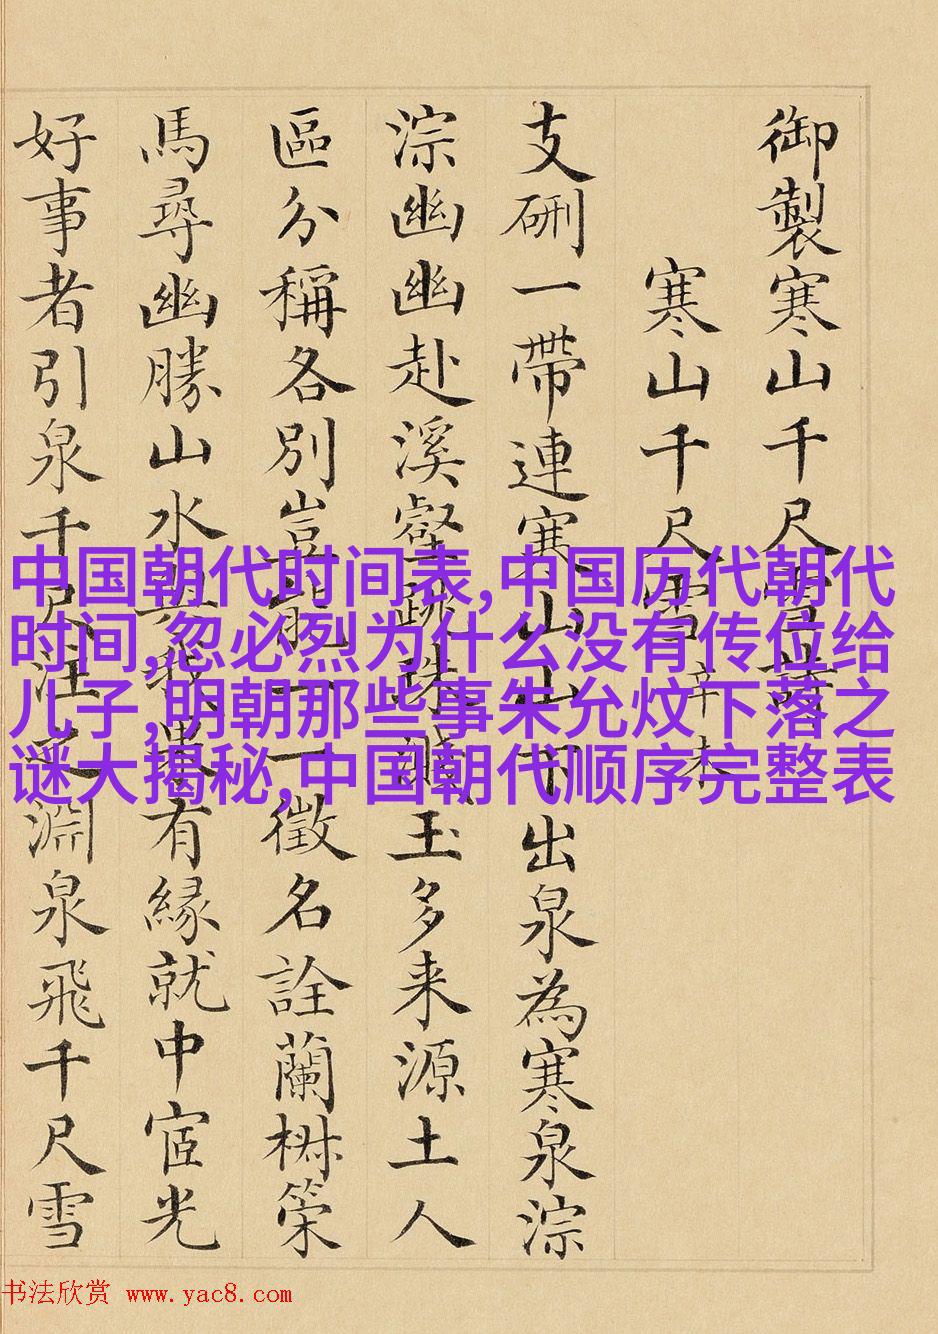 御製寒山千尺雪詩
寒山千尺雪 辛未
支硎一帶連寒山山下出泉為寒泉淙
淙幽幽赴溪壑跳珠濺玉多来源土人
區分稱各別豈能一一徵名詮蘭椒策
馬尋幽勝山水與我有緣就中宧光
好事者引泉千尺注之淵泉飛千尺雪
中国朝代时间表,中国历代朝代
时间,忽必烈为什么没有传位给
儿子,明朝那些事朱允炆下落之
谜大揭秘,中国朝代顺序完整表
书法欣赏 www.yac8.com